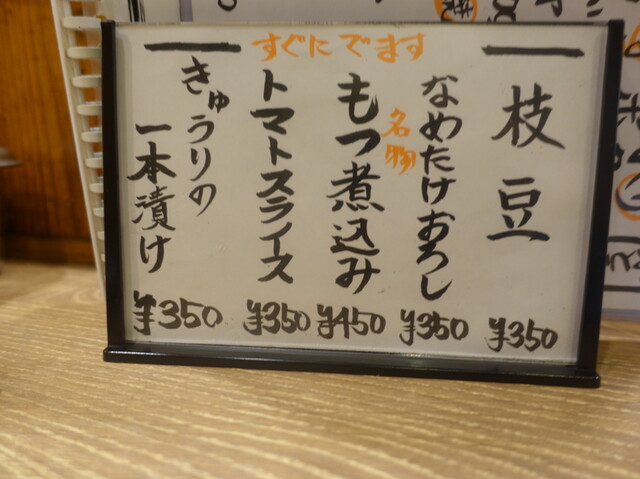 すぐにでます
枝豆
¥350
なめたけおろし
¥350
名物
もつ煮込み
¥450
トマトスライス
¥350
きゅうりの
一本漬け
¥350